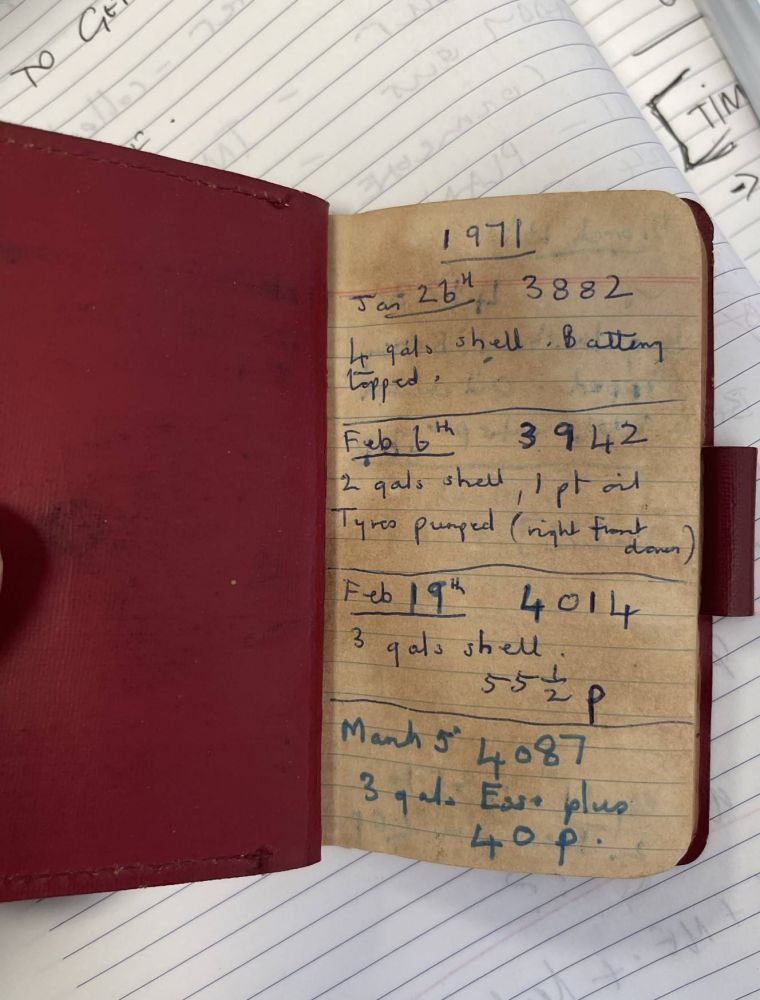 TO GET
[TIM
1971
Jan 26th 3882
4 gals shell. Battery
topped.
Feb 6th 3942
2 gals shell, 1 pt oil
Tyres pumped (right front
down)
Feb 19th 4014
3 gals shell.
55 1/2 p
March 5th 4087
3 gals Esso plus
40 p.